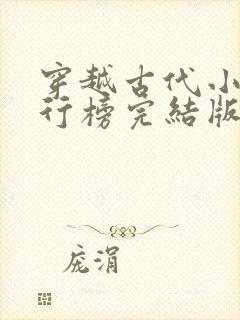 穿越古代小
行榜完結版
庞涓